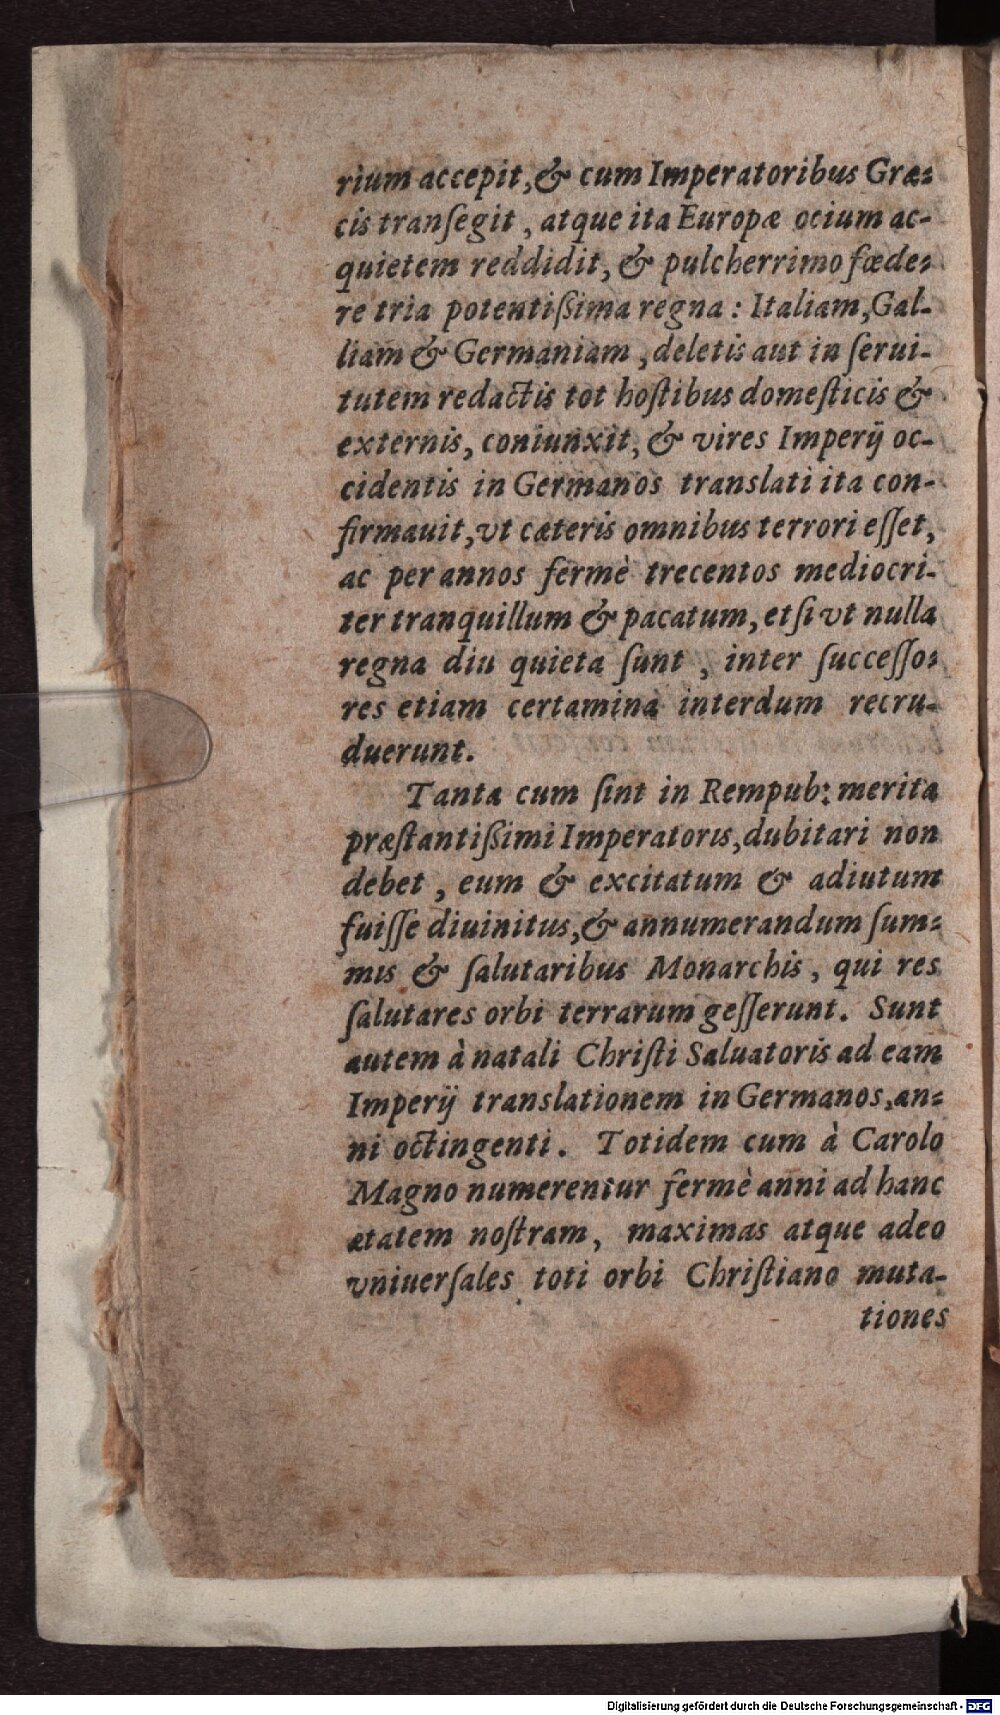 rium accepit, & cum Imperatoribus Græ-
cis tranſegit, atque ita Europæ ocium ac-
quietem reddidit, & pulcherrimo fœde-
re tria potentiſſima regna: Italiam, Gal-
liam & Germaniam, deletis aut in ſerui-
tutem redactis tot hoſtibus domeſticis &
externis, coniunxit, & vires Imperij oc-
cidentis in Germanos translati ita con-
firmauit, vt cæteris omnibus terrori eſſet,
ac per annos fermè trecentos mediocri-
ter tranquillum & pacatum, etſi vt nulla
regna diu quieta ſunt, inter ſucceſſo-
res etiam certamina interdum recru-
duerunt.
Tanta cum ſint in Rempub: merita
præſtantiſſimi Imperatoris, dubitari non
debet, eum & excitatum & adiutum
fuiſſe diuinitus, & annumerandum ſum-
mis & ſalutaribus Monarchis, qui res
ſalutares orbi terrarum geſſerunt. Sunt
autem à natali Chriſti Saluatoris ad eam
Imperij translationem in Germanos, an-
ni octingenti. Totidem cum à Carolo
Magno numerentur fermè anni ad hanc
ætatem noſtram, maximas atque adeo
vniuerſales toti orbi Chriſtiano muta-
tiones
Digitalisierung gefördert durch die Deutsche Forschungsgemeinschaft - DFG